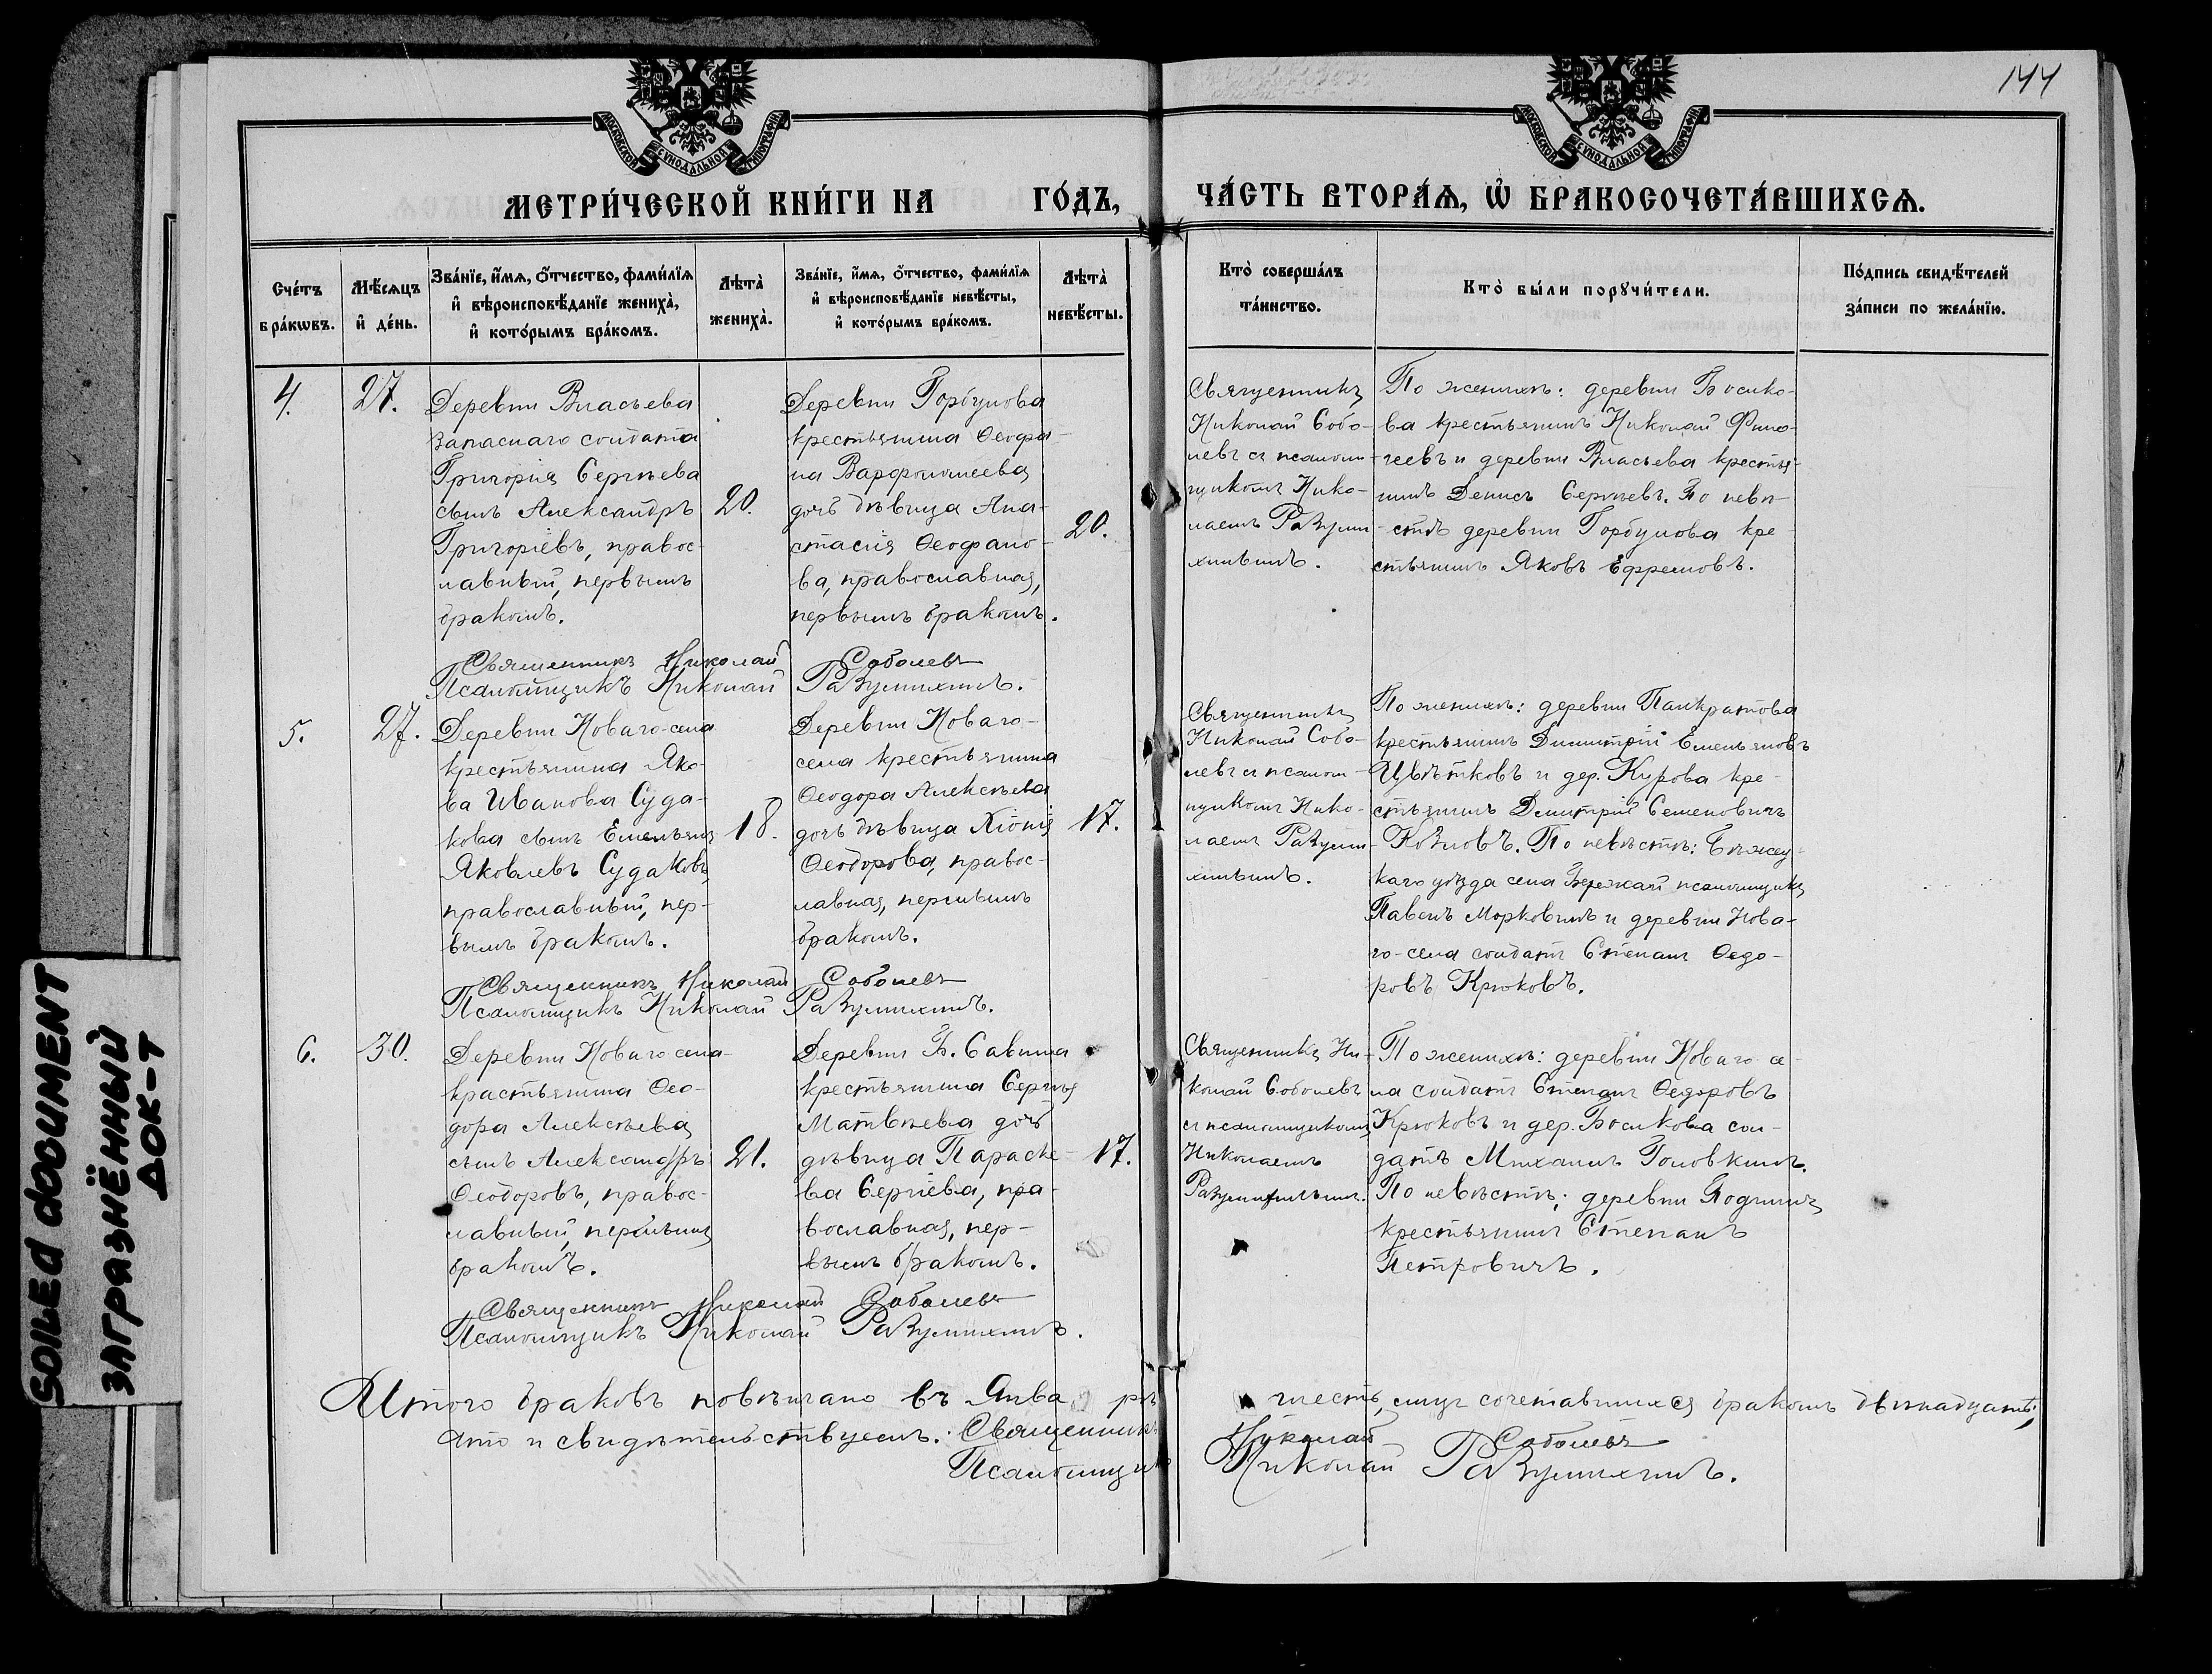 144
МОСКОВСКОЙ СѴНОДАЛЬНОЙ ТИПОГРАФІИ
МОСКОВСКОЙ СѴНОДАЛЬНОЙ ТИПОГРАФІИ
МЕТРИ́ЧЕСКОЙ КНИ́ГИ НА ГО́ДЪ,
ЧА́СТЬ ВТОРА́Ѧ, Ѽ БРАКОСОЧЕТА́ВШИХСѦ.
Сче́тъ
бра́кѡвъ.
Мѣ́сѧцъ
и҆ де́нь.
Зва́нїе, и҆́мѧ, ѻ҆́тчество, фами́лїѧ
и҆ вѣроисповѣ́данїе жениха̀,
и҆ кото́рымъ бра́комъ.
Лѣта̀
жениха̀.
Зва́нїе, и҆́мѧ, ѻ҆́тчество, фами́лїѧ
и҆ вѣроисповѣ́данїе невѣ́сты,
и҆ кото́рымъ бра́комъ.
Лѣта̀
невѣ́сты.
Кто̀ соверша́лъ
та́инство.
Кто̀ бы́ли порꙋчи́тели.
По́дпись свидѣ́телей
за́писи по жела́нїю.
4.
27.
Деревни Власьева
запаснаго солдата
Григорія Сергѣева
сынъ Александръ
Григоріевъ, правос-
лавный, первымъ
бракомъ.
20.
Деревни Горбунова
крестьянина Ѳеофа-
на Варфоломеева
дочь дѣвица Ана-
стасія Ѳеофано-
ва, православная,
первымъ бракомъ.
20.
Священникъ
Николай Собо-
левъ съ псалом-
щикомъ Нико-
лаемъ Разуми-
хинымъ.
По женихѣ: деревни Босико-
ва крестьянинъ Николай Фило-
геевъ и деревни Власьева крестья-
нинъ Денисъ Сергѣевъ. По невѣ-
стѣ деревни Горбунова кре-
стьянинъ Яковъ Ефремовъ.
Священникъ Николай Соболевъ
Псаломщикъ Николай Разумихинъ.
5.
27.
Деревни Новаго-села
крестьянина Яко-
ва Иванова Суда-
кова сынъ Емельянъ
Яковлевъ Судаковъ,
православный, пер-
вымъ бракомъ.
18.
Деревни Новаго-
села крестьянина
Ѳеодора Алексѣева
дочь дѣвица Хіонія
Ѳеодорова, правос-
лавная, первымъ
бракомъ.
17.
Священникъ
Николай Собо-
левъ съ псалом-
щикомъ Нико-
лаемъ Разуми-
хинымъ.
По женихѣ: деревни Панкратова
крестьянинъ Димитрій Емельяновъ
Цвѣтковъ и дер. Курова кре-
стьянинъ Димитрій Семеновичъ
Козловъ. По невѣстѣ: Бѣжец-
каго уѣзда села Бережай псаломщикъ
Павелъ Морковинъ и деревни Нова-
го-села солдатъ Степанъ Ѳедо-
ровъ Крюковъ.
Священникъ Николай Соболевъ
Псаломщикъ Николай Разумихинъ.
6.
30.
Деревни Новаго села-
крастьянина Ѳео-
дора Алексѣева
сынъ Александръ
Ѳеодоровъ, правос-
лавный, первымъ
бракомъ.
21.
Деревни Б. Савина
крестьянина Сергѣя
Матвѣева дочь
дѣвица Параске-
ва Сергіева, пра-
вославная, пер-
вымъ бракомъ.
17.
Священникъ Ни-
колай Соболевъ
съ псаломщикомъ
Николаемъ
Разумихинымъ.
По женихѣ: деревни Новаго се-
ла солдатъ Степанъ Ѳедоровъ
Крюковъ и дер. Босикова сол-
датъ Михаилъ Головкинъ.
По невѣстѣ: деревни
крестьянинъ Степанъ
Петровичъ.
Священникъ Николай Соболевъ
Псаломщикъ Николай Разумихинъ.
Итого браковъ повѣнчано въ Январѣ шесть, лицъ сочетавшихся бракомъ двѣнадцать,
что и свидѣтельствуемъ. Священникъ Николай Соболевъ
Псаломщикъ Николай Разумихинъ.
SOILED DOCUMENT
ЗАГРЯЗНЁННЫЙ
ДОК-Т